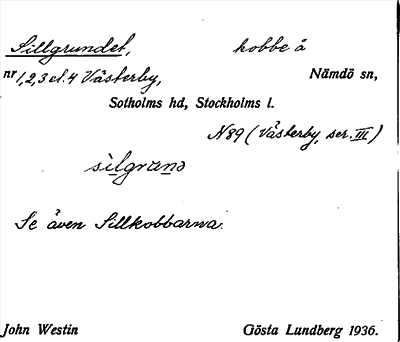 Sillgrundet, kobbe å
nr 1, 2, 3 el. 4 Västerby, Nämdö sn,
Sotholms hd, Stockholms l.
N89 (Västerby, ser. III)
silgrunə
Se även Sillkobbarna.
John Westin Gösta Lundberg 1936.